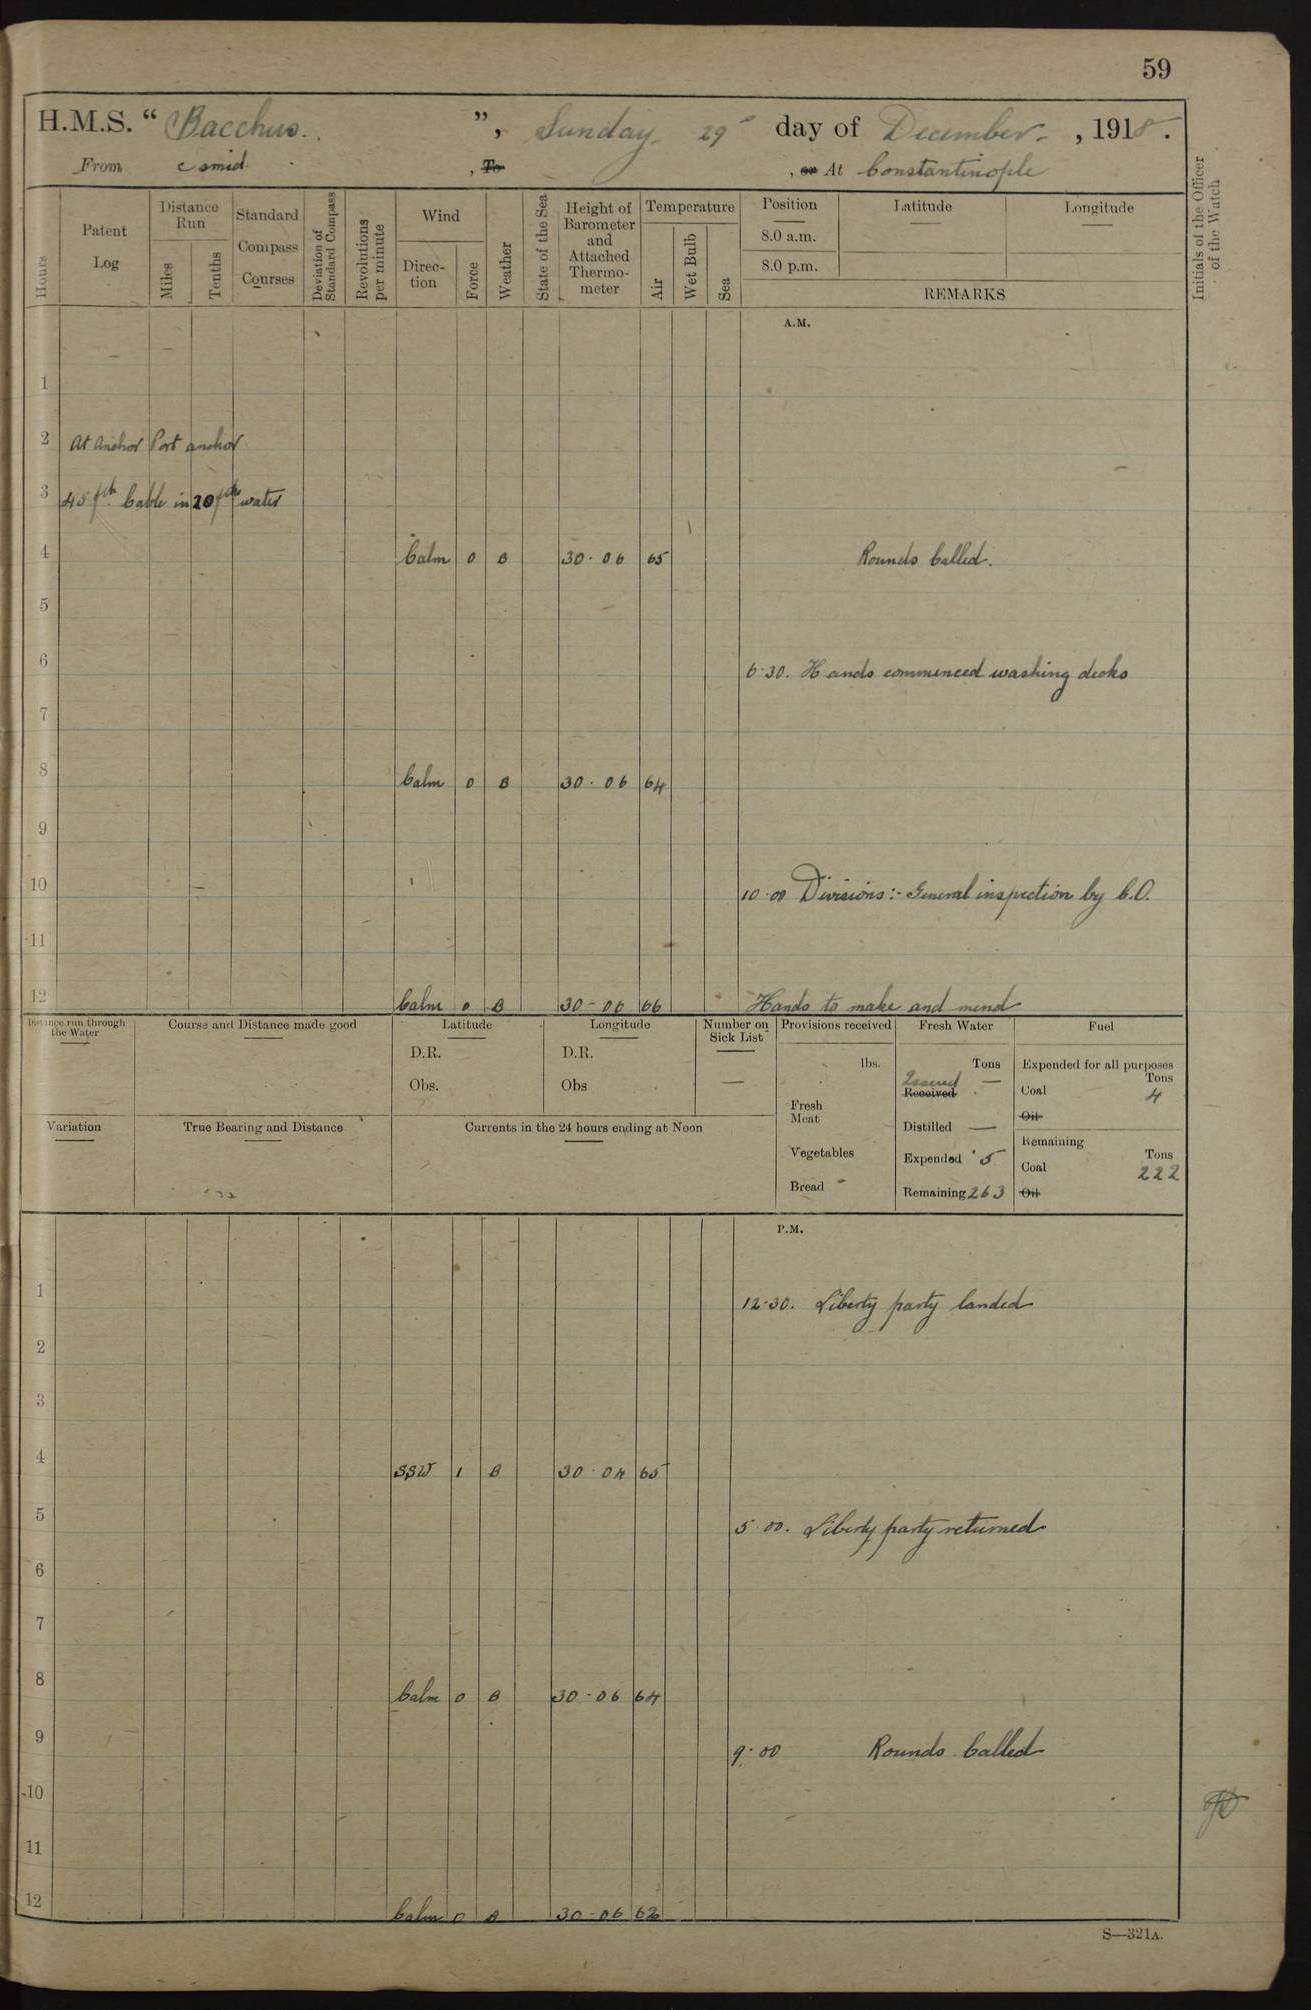 59
H.M.S. “ Bacchus. ”, Sunday 29th day of December , 1918.
From Esmid. , To , or At Constantinople
Hours
Patent Log
Distance Run
Miles
Tenths
Standard Compass Courses
Deviation of Standard Compass
Revolutions per minute
Wind
Direction
Force
Weather
State of the Sea
Height of Barometer and Attached Thermometer
Temperature
Air
Wet Bulb
Sea
Position
8.0 a.m.
8.0 p.m.
Latitude
Longitude
REMARKS
Initials of the Officer of the Watch
A.M.
1
2 At Anchor Port anchor
3 45 fth Cable in 20 fths water
4 Calm 0 B 30.06 65 Rounds Called.
5
6 6.30. Hands commenced washing decks
7
8 Calm 0 B 30.06 64
9
10 10.00 Divisions:- General inspection by C.O.
11
12 Calm 0 B 30-06 66 Hands to make and mend
Distance run through the Water
Course and Distance made good
Latitude
D.R.
Obs.
Longitude
D.R.
Obs
Number on Sick List
—
Provisions received
lbs.
Fresh Meat
Vegetables
Bread
Fresh Water
Tons
Issued —
Received
Distilled —
Expended 5
Remaining 263
Fuel
Expended for all purposes
Tons
Coal 4
Oil
Remaining
Tons
Coal 222
Oil
Variation
True Bearing and Distance
Currents in the 24 hours ending at Noon
P.M.
1 12-30. Liberty party landed
2
3
4 SSW 1 B 30.04 65
5 5.00. Liberty party returned
6
7
8 Calm 0 B 30.06 64
9 9.00 Rounds Called
10
11
12 Calm 0 B 30-06 62
S—321A.